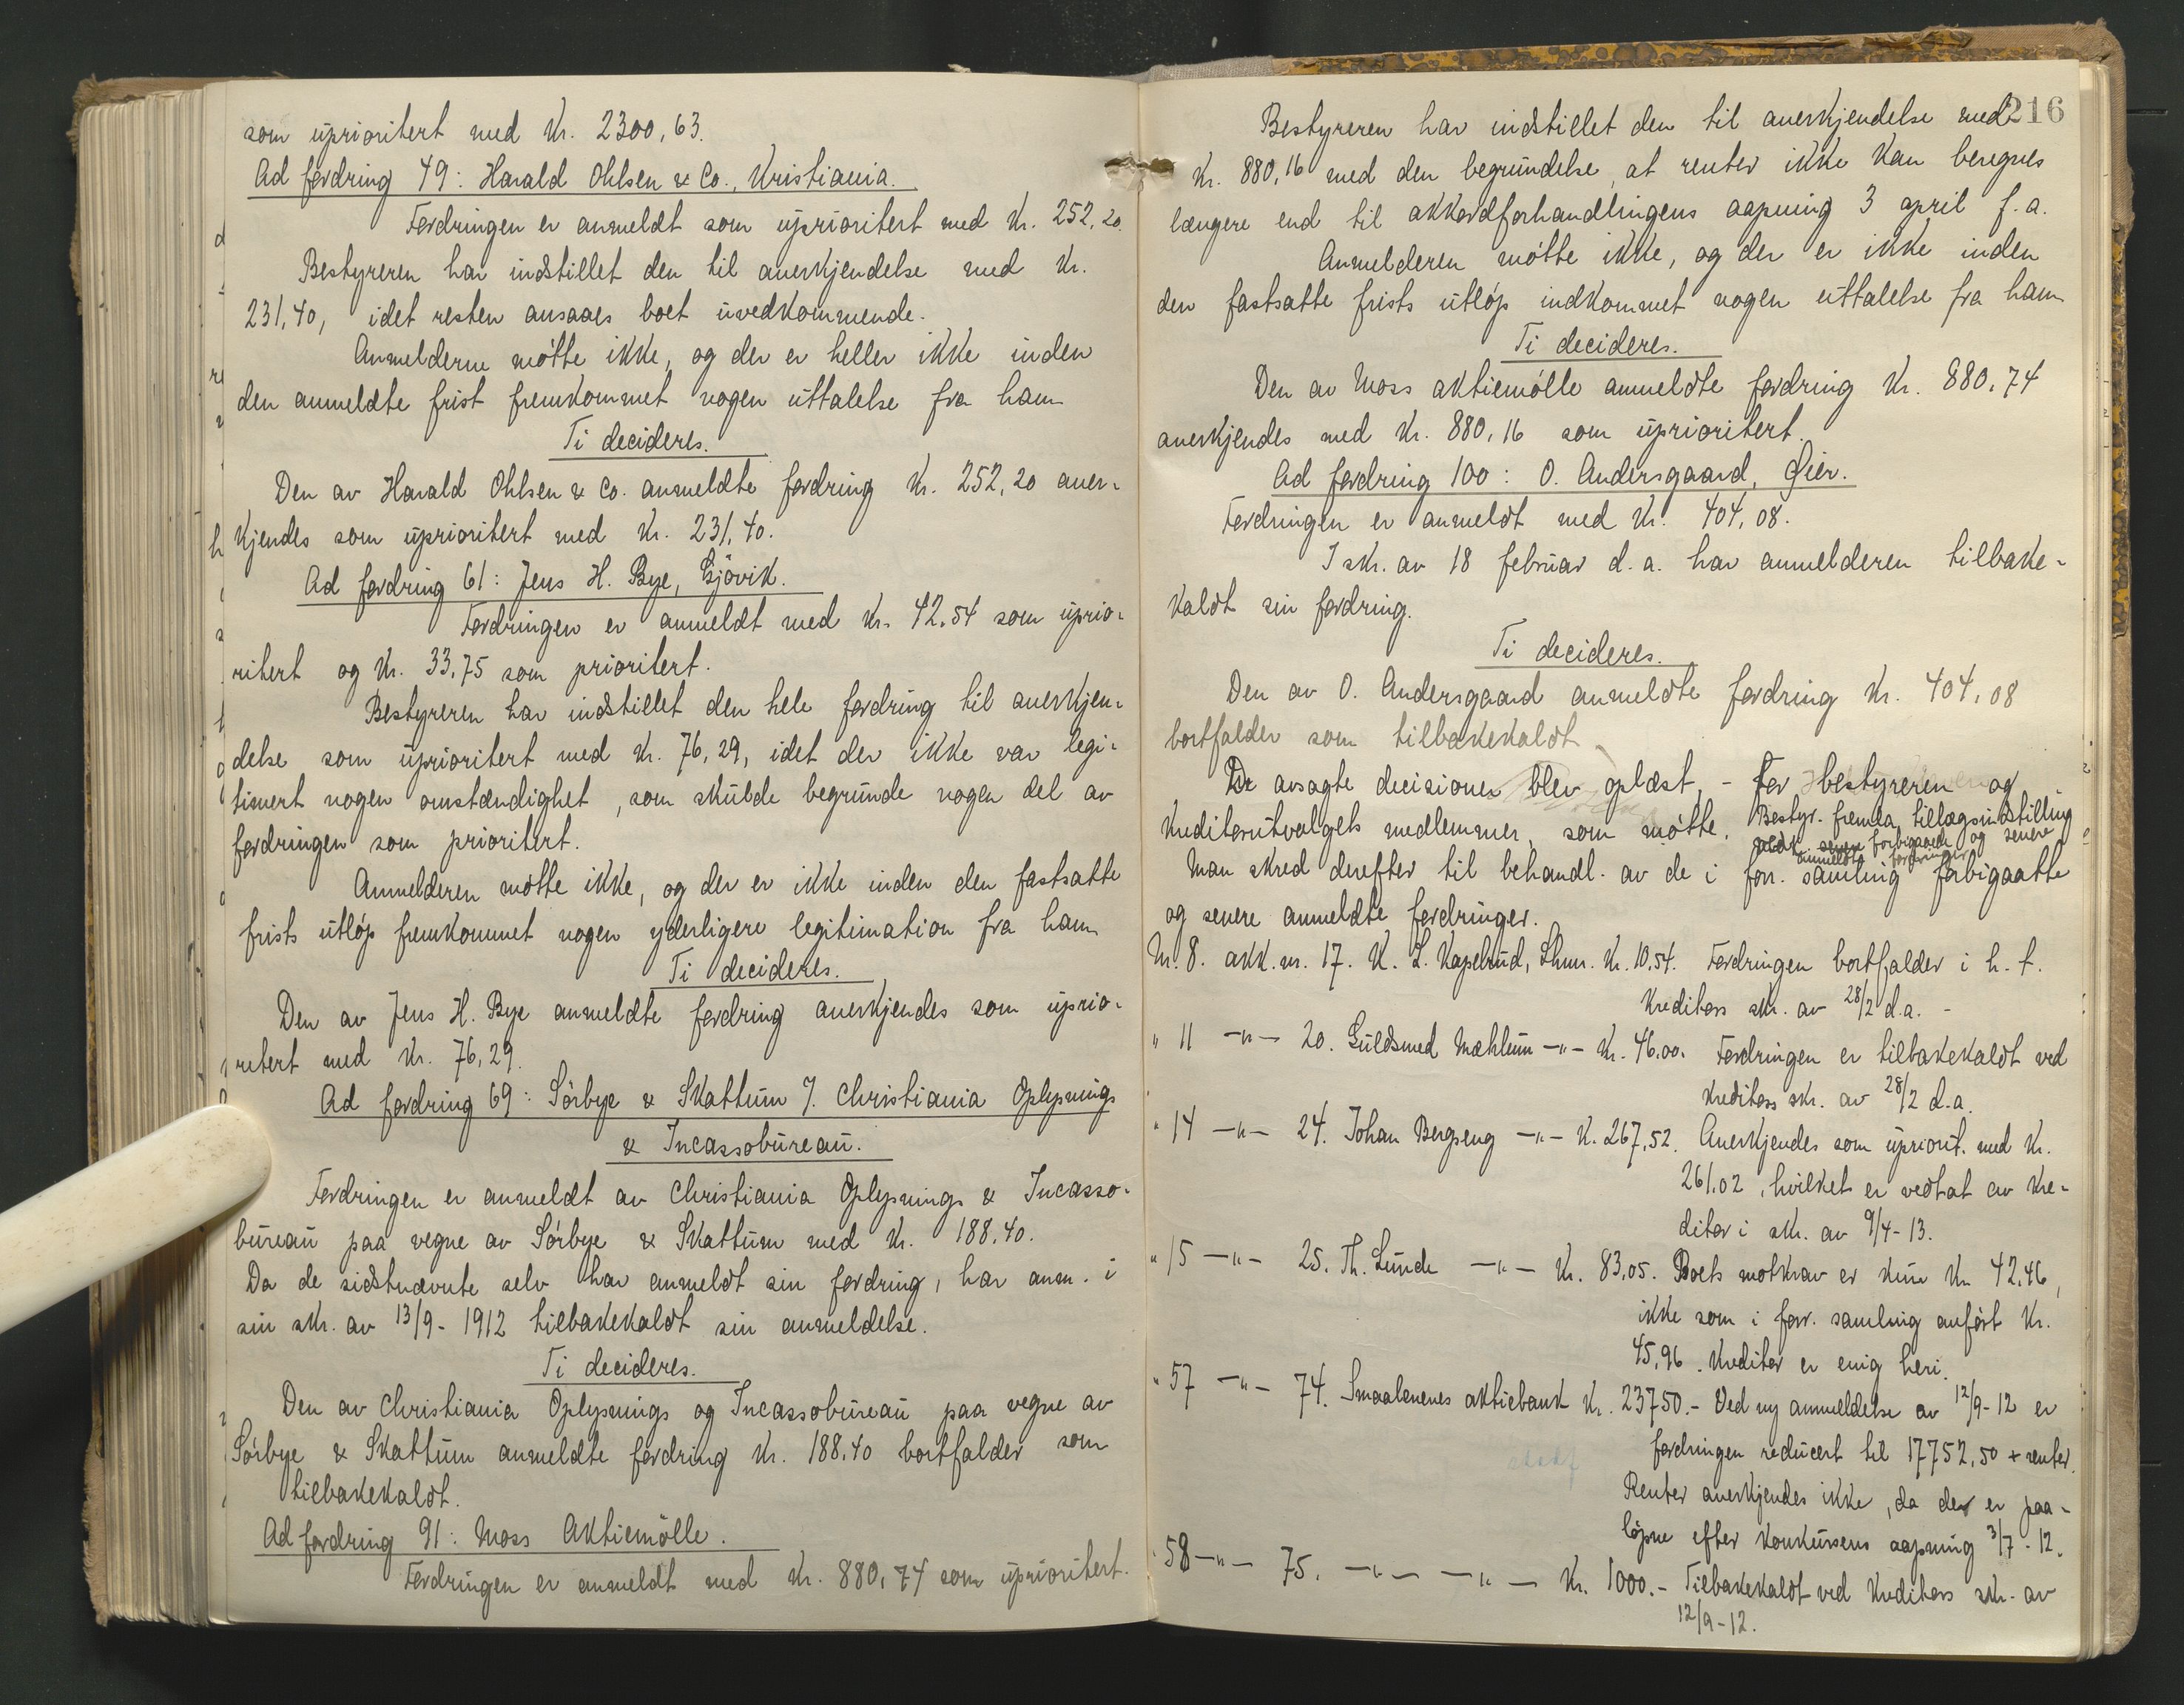 som uprioritert med Kr. 2300,63.
Ad fordring 49: Harald Ohlsen & Co., Kristiania.
Fordringen er anmeldt som uprioritert med Kr. 252,20.
Bestyreren har indstillet den til anerkjendelse med Kr.
231,40, idet resten ansaaes boet uvedkommende.
Anmelderne møtte ikke, og der er heller ikke inden
den anmeldte frist fremkommet nogen uttalelse fra ham
Ti decideres.
Den av Harald Ohlsen & Co. anmeldte fordring Kr. 252,20 aner-
kjendes som uprioritert med Kr. 231,40.
Ad fordring 61: Jens H. Bye, Gjøvik.
Fordringen er anmeldt med Kr. 42,54 som uprio-
ritert og Kr. 33,75 som prioritert.
Bestyreren har indstillet den hele fordring til anerkjen-
delse som uprioritert med Kr. 76,29, idet der ikke var legi-
timert nogen omstændighet, som skulde begrunde nogen del av
fordringen som prioritert.
Anmelderen møtte ikke, og der er ikke inden den fastsatte
frists utløp fremkommet nogen yderligere legitimation fra ham
Ti decideres.
Den av Jens H. Bye anmeldte fordring anerkjendes som uprio-
ritert med Kr. 76,29.
Ad fordring 69: Sørbye & Skattum v. Christiania Oplysnings
& Incassobureau.
Fordringen er anmeldt av Christiania Oplysnings & Incasso-
bureau paa vegne av Sørbye & Skattum med Kr. 188,40.
Da de sidstnævnte selv har anmeldt sin fordring, har anm. i
sin skr. av 13/9-1912 tilbakekaldt sin anmeldelse.
Ti decideres.
Den av Christiania Oplysnings og Incassobureau paa vegne av
Sørbye & Skattum anmeldte fordring Kr. 188,40 bortfalder som
tilbakekaldt.
Ad fordring 91: Moss Aktiemølle.
Fordringen er anmeldt med Kr. 880,74 som uprioritert.
216
Bestyreren har indstillet den til anerkjendelse med
Kr. 880,16 med den begrundelse, at renter ikke kan beregnes
længere end til akkordforhandlingens aapning 3 april f.a.
Anmelderen møtte ikke, og der er ikke inden
den fastsatte frists utløp indkommet nogen uttalelse fra ham
Ti decideres.
Den av Moss aktiemølle anmeldte fordring Kr. 880,74
anerkjendes med Kr. 880,16 som uprioritert.
Ad fordring 100: O. Andersgaard, Øier.
Fordringen er anmeldt med Kr. 404,08.
I skr. av 18 februar d.a. har anmelderen tilbake-
kaldt sin fordring.
Ti decideres.
Den av O. Andersgaard anmeldte fordring Kr. 404,08
bortfalder som tilbakekaldt
De avsagte decisioner blev oplæst, - for bestyreren og
kreditorutvalgets medlemmer, som møtte. Bestyr. fremla tillægsindstilling
forbigaaede og senere
anmeldte fordringer
Man skred derefter til behandl. av de i forr. samling forbigaatte
og senere anmeldte fordringer.
Nr. 8. akk.nr. 17. K. L. Kapelrud, Lhmr. Kr. 10,54. Fordringen bortfalder i h. t.
kreditors skr. av 28/2 d.a. -
" 11 -"- 20. Guldsmed Mæhlum -"- Kr. 46.00. Fordringen er tilbakekaldt ved
kreditors skr. av 28/2 d.a.
" 14 -"- 24. Johan Bergseng -"- K. 267,52. Anerkjendes som upriorit. med Kr.
261.02, hvilket er vedtat av kre-
ditor i skr. av 9/4-13.
" 15 -"- 25. Th. Lunde -"- Kr. 83,05. Boets motkrav er kun Kr 42,46,
ikke som i forr. samling anført Kr.
45,96. Kreditor er enig heri.
" 57 -"- 74. Smaalenenes aktiebank Kr. 23750.- Ved ny anmeldelse av 12/9-12 er
fordringen reducert til 17752,50 + renter.
Renter anerkjendes ikke, da der er paa-
løpne efter konkursens aapning 3/7-12.
" 58 -"- 75. -"- -"- Kr. 1000.- Tilbakekaldt ved kreditors skr. av
12/9-12.